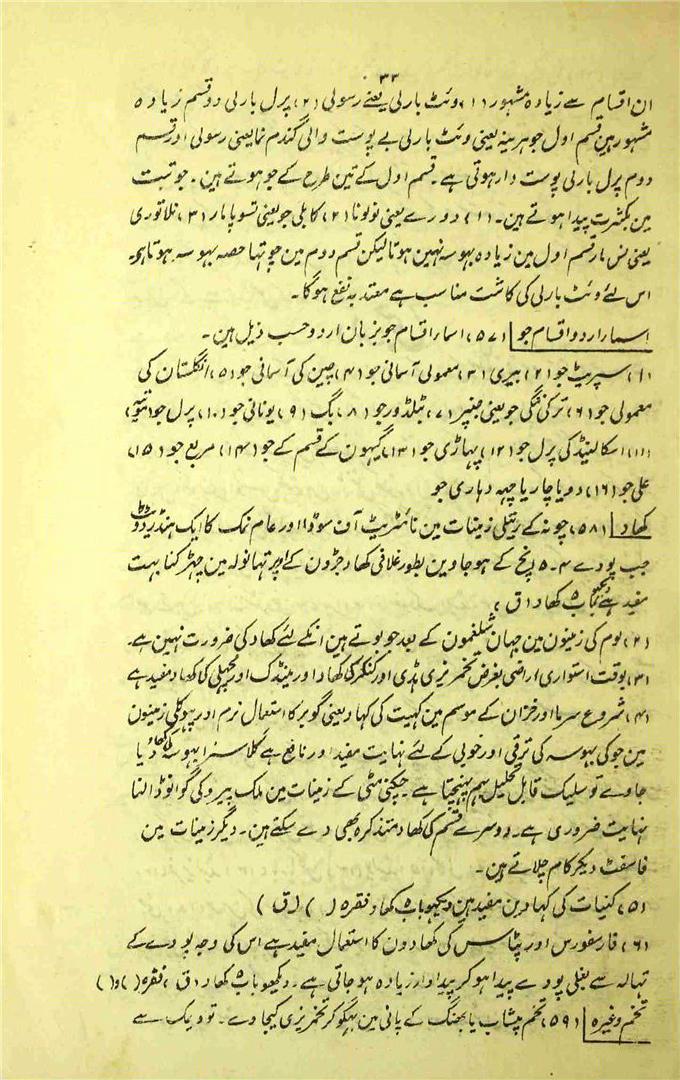 ۳۳
ان اقسام سے زیادہ مشہور (۱) وئٹ بارلی یعنے رسولی (۲) پرل بارلی دو قسم زیادہ
مشہور ہین قسم اول جو ہرینہ یعنی وئٹ بارلی بے پوست والی گندم نما یعنی رسولی اور قسم
دوم پرل بارلی پوست دار ہوتی ہے ۔ قسم اول کے تین طرح کے جو ہوتے ہین ۔ جو تبت
مین بکثرت پیدا ہوتے ہین ۔ (۱) دورے یعنی نونونا (۲) کابلی جو یعنی تسوپا مار (۳) نلاتوری
یعنی نس مار قسم اول مین زیادہ بہوسہ نہین ہوتا لیکن قسم دوم مین چوتہا حصہ بہوسہ ہوتا ہی
اس لئے وئٹ بارلی کی کاشت مناسب ہے معتد بہ نفع ہوگا ۔
اسمار اردو اقسام جو (۵۷) اسمار اقسام جو بزبان اردو حسب ذیل ہین ۔
(۱) سپریٹ جو (۲) بیری (۳) معمولی آسانی جو (۴) چین کی آسانی جو (۵) انگلستان کی
معمولی جو (۶) ترکی تنگی جو یعنی جنپر (۷) ٹبلڈور جو (۸) بگ (۹) یونانی جو (۱۰) پرل جو
(۱۱) اسکالینڈ کی پرل جو (۱۲) پہاڑی جو (۱۳) گیہون کے قسم کے جو (۱۴) مربع جو (۱۵)
علی جو (۱۶) دو یا چار یا چہہ دہاری جو
کھاد (۵۸) چونہ کے ریتلی زمینات مین نائٹریٹ آف سوڈا اور عام نمک کا ایک ہنڈریڈوٹ
جب پودے ۴-۵ اِنچ کے ہو جاوین بطور غلافی کھاد جڑون کے اوپر تہانولہ مین چہڑکنا بہت
مفید ہے باب ۵ کھاد (ق)
(۲) لوم کی زمینون مین جہان شلغمون کے بعد جو بوتے ہین انکے لئے کھاد کی ضرورت نہین ہے ۔
(۳) بوقت استواری اراضی بغرض تخمریزی ہڈی اور کنکر کی کھاد اور مینڈک اور مچہلی کا کھاد مفید ہے
(۴) شروع سرما اور خزان کے موسم مین کہیت کی کہاد یعنی گوبر کا استعمال نرم اور ہلکی زمینون
مین جو کی بہوسہ کی ترقی اور خوبی کے لئے نہایت مفید اور نافع ہے گلا سڑا بہوسہ کا کھاد دیا
جاوے تو سلیک قابل تحلیل بہم پہنچتا ہے ۔ چکنی مٹی کے زمینات مین ملک پیرو کی گوانو ڈالنا
نہایت ضروری ہے ۔ دوسرے قسم کی کھاد متذکرہ بھی دے سکتے ہین ۔ دیگر زمینات مین
فاسفٹ دیکر کام چلاتے ہین ۔
(۵) کنیات کی کہادین مفید ہین دیکہو باب ۵ کھاد فقرہ ( ) (ق)
(۶) فارسفورس اور پٹاس کی کھادون کا استعمال مفید ہے اس کی وجہ پودے کے
تہالہ سے بغلی پودے پیدا ہو کر پیداوار زیادہ ہو جاتی ہے ۔ دیکھو باب ۵ کھاد (ق) فقرہ ( ) و ( )
تخم وغیرہ (۵۹) تخم پیشاب یا بھنگ کے پانی مین بہگو کر تخمریزی کیجاوے ۔ تو دیمک سے